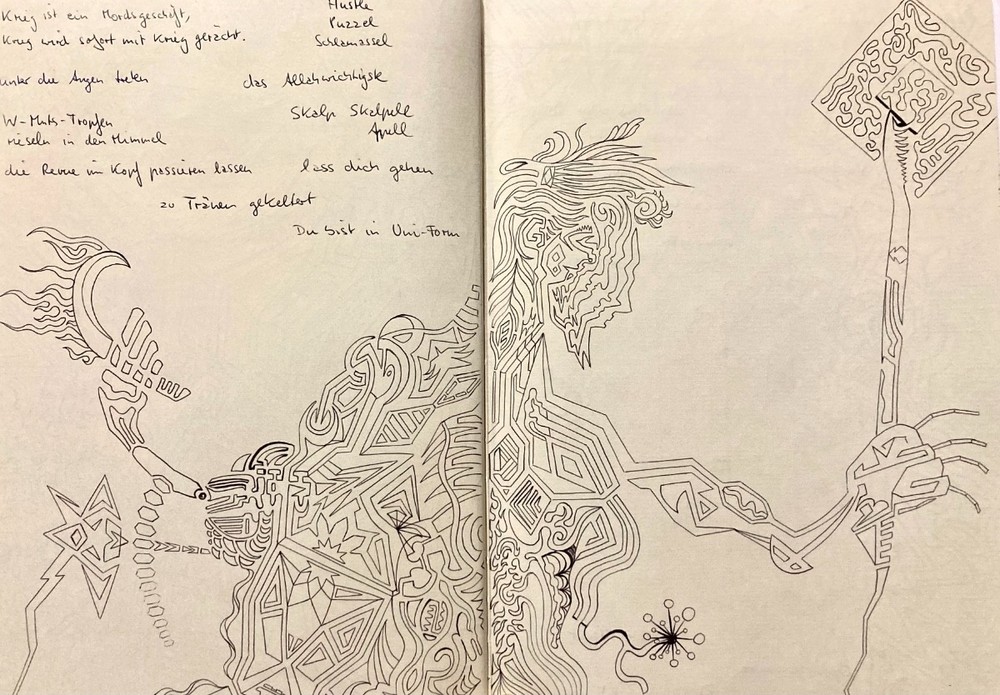 Krieg ist ein Mordsgeschäft,
Krieg wird sofort mit Krieg gerächt.
unter die Augen treten
W-Muts-Tropfen
rieseln in den
die Revue im Kopf passieren lassen
Hustle
Puzzel
Schlamassel
das Allahwichtigste
Skalp Skalpell
Apell
lass dich gehen
zu Tränen gekeltert
Du bist in Uni-Form